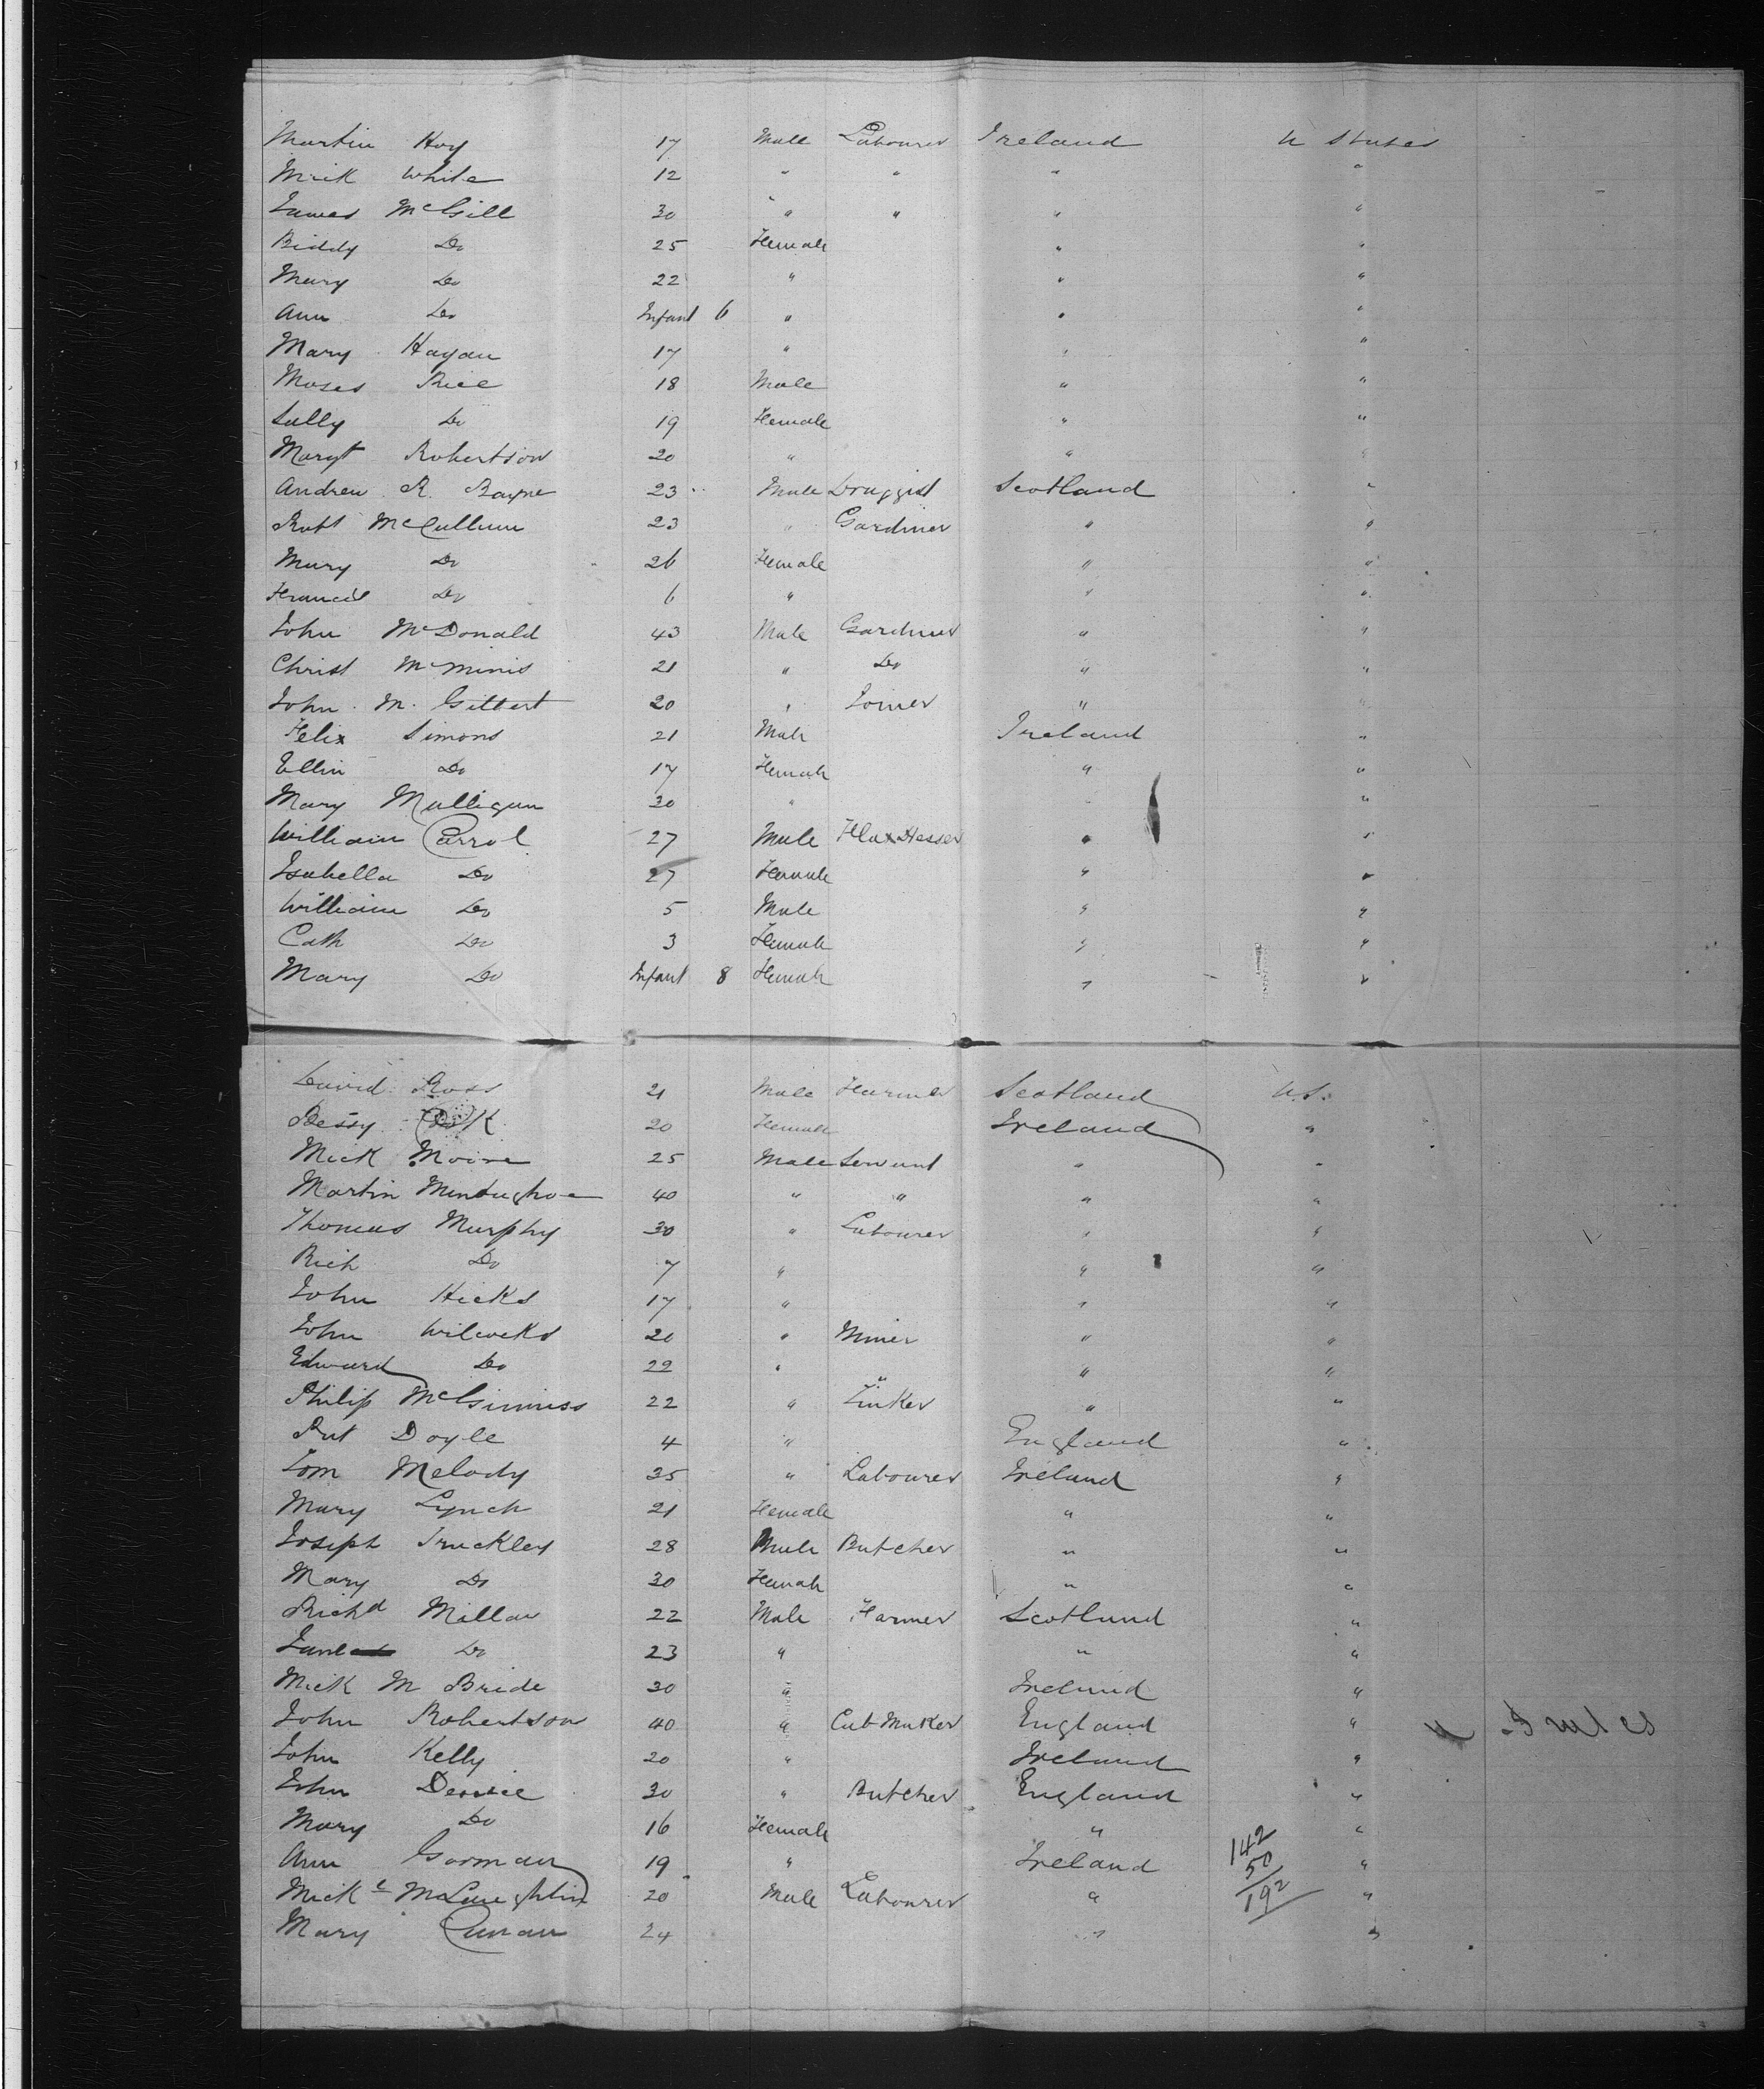 Martin Hoy 17 Male Labourer Ireland U States
Mick White 12 " " " "
James McGill 30 " " " "
Biddy Do 25 Female " "
Mary Do 22 " " "
Ann Do Infant 6 " " "
Mary Hagan 17 " " "
Moses Rice 18 Male " "
Sally Do 19 Female " "
Margt Robertson 20 " " "
Andrew R. Bayne 23 Male Druggist Scotland "
Robt McCullum 23 " Gardiner " "
Mary Do 26 Female " "
Francis Do 6 " " "
John McDonald 43 Male Gardiner " "
Christ McMinis 21 " Do " "
John M. Gilbert 20 " Joiner " "
Felix Simons 21 Male Ireland "
Ellin Do 17 Female " "
Mary Mulligan 30 " " "
William Carrol 27 Male Flax Dresser " "
Isabella Do 27 Female " "
William Do 5 Male " "
Cath Do 3 Female " "
Mary Do Infant 8 Female " "
David Ross 21 Male Farmer Scotland U.S.
Bessy 20 Female Ireland "
Mick Moore 25 Male Servant " "
Martin 40 " " " "
Thomas Murphy 30 " Labourer " "
Rich Do 7 " " "
John Hicks 17 " " "
John Wilcocks 20 " Miner " "
Edward Do 22 " " " "
Philip McGinniss 22 " Tinker " "
Pat Doyle 4 " England "
Tom Melody 35 " Labourer Ireland "
Mary Lynch 21 Female " "
Joseph Truckley 28 Male Butcher " "
Mary Do 30 Female " "
Richd Millar 22 Male Farmer Scotland "
Jane Do 23 " " "
Mick M Bride 30 " Ireland "
John Robertson 40 " Cab Maker England "
John Kelly 20 " Ireland "
John 30 " Butcher England "
Mary Do 16 Female " "
Ann Gorman 19 " Ireland "
Mickl McLaughlin 20 Male Labourer " "
Mary Cunan 24 " "
142
50
192